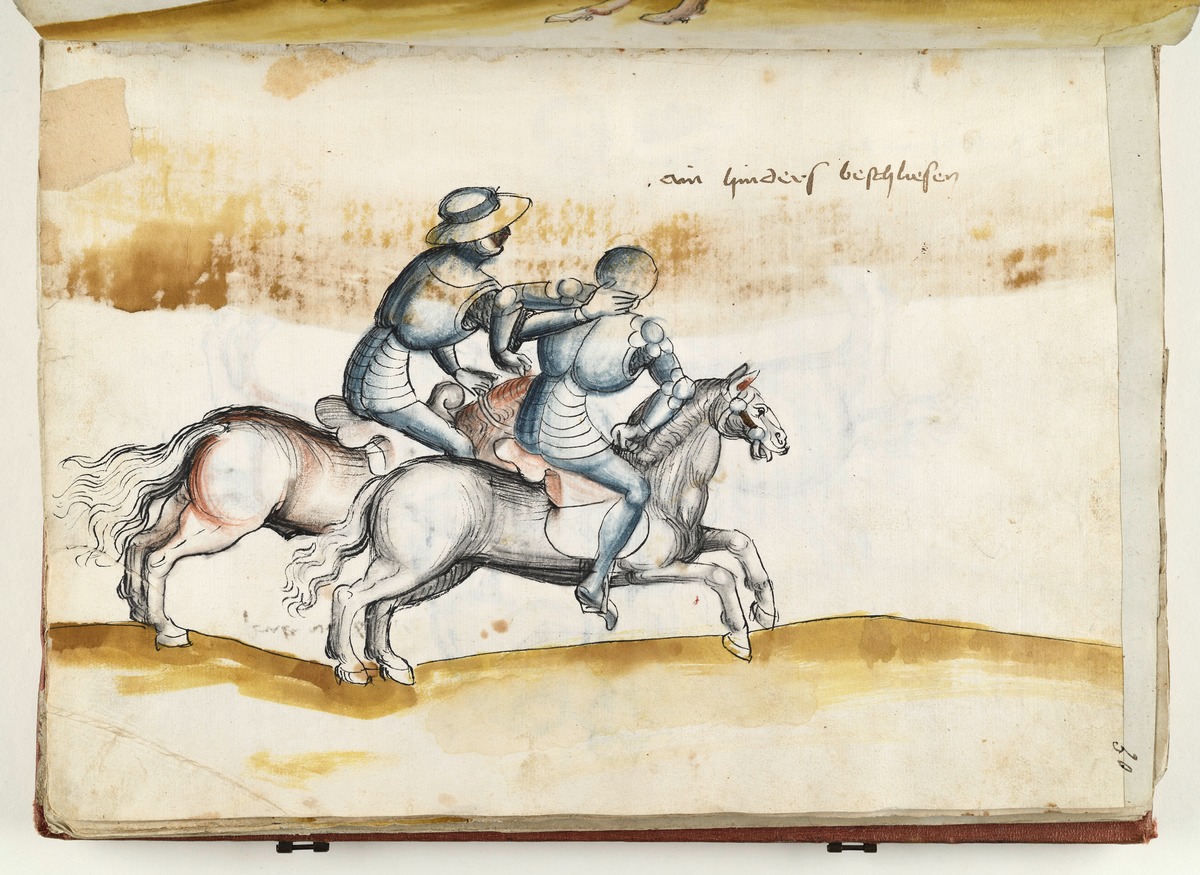 ain hinders beschliesen
90